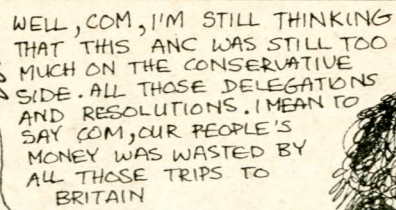 WELL, COM, I'M STILL THINKING
THAT THIS ANC WAS STILL TOO
MUCH ON THE CONSERVATIVE
SIDE. ALL THOSE DELEGATIONS
AND RESOLUTIONS. I MEAN TO
SAY COM, OUR PEOPLE'S
MONEY WAS WASTED BY
ALL THOSE TRIPS TO
BRITAIN